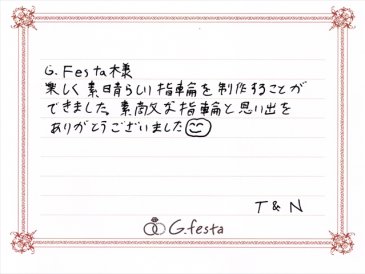 G.Festa様
楽しく素晴らしい指輪を制作することが
できました。素敵な指輪と思い出を
ありがとうございました
T & N
G.festa